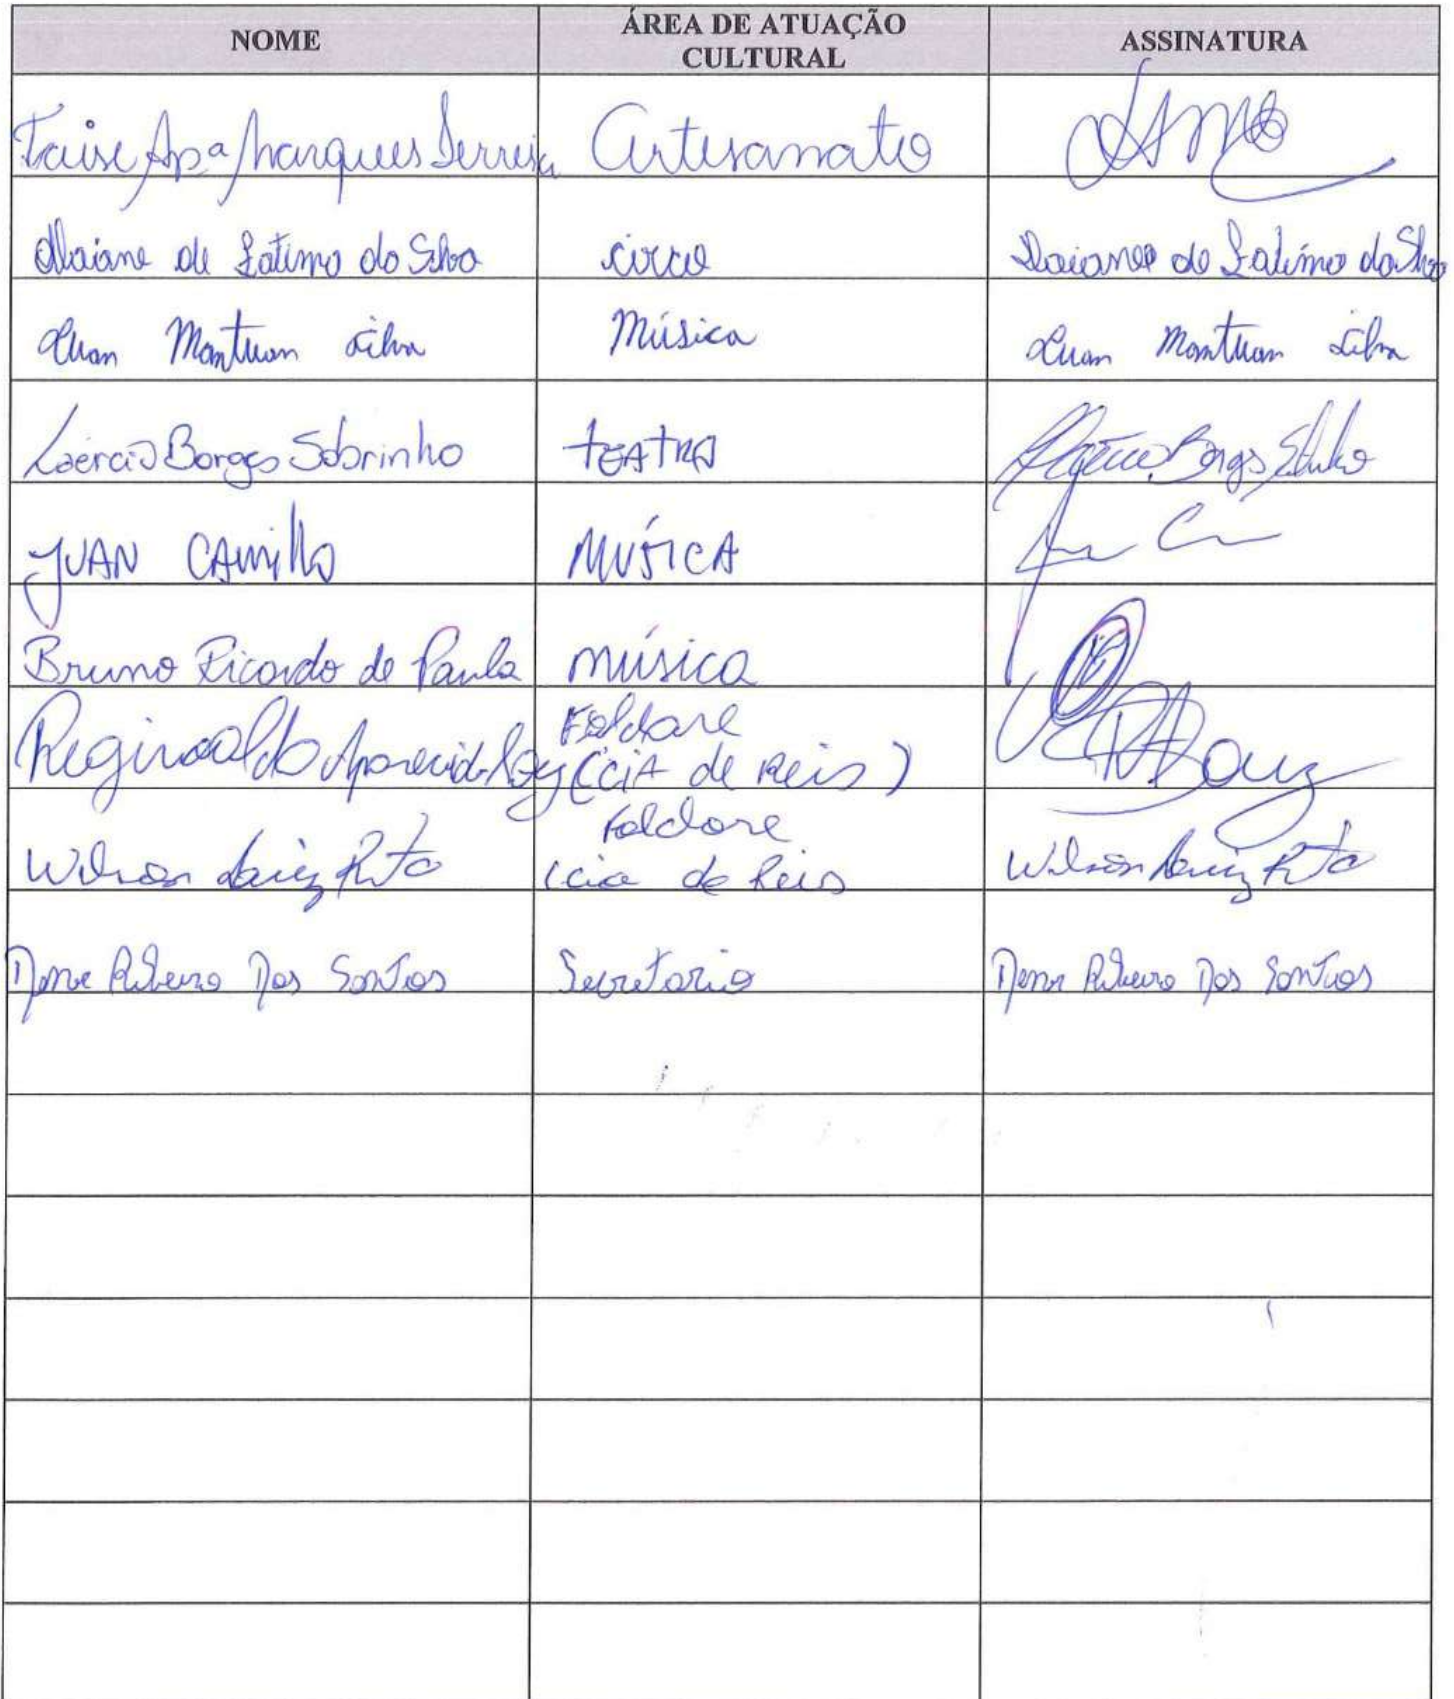 NOME
ÁREA DE ATUAÇÃO
CULTURAL
ASSINATURA
Taise Apª Marques Ferreira Artesanato
Daiane de Fatima da Silva circo Daiane de Fatima da Silva
Luan Mantuan Silva Música Luan Mantuan Silva
Laércio Borges Sobrinho TEATRO Laércio Borges Sobrinho
JUAN CAMillo MÚSICA
Bruno Ricardo de Paula música
Reginaldo Aparecido Folclore
(CIA de Reis)
Wilson Luiz Rita Folclore Wilson Luiz Rita
(cia de Reis
Ribeiro Dos Santos Secretario Ribeiro Dos Santos